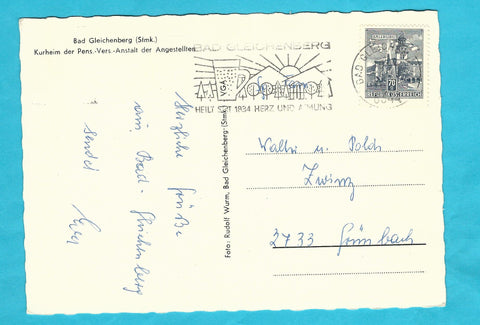 Bad Gleichenberg (Stmk.)
Kurheim der Pens.-Vers.-Anstalt der Angestellten
BAD GLEICHENBERG
VGA
HEILT SEIT 1834 HERZ UND ATMUNG
BAD GLEI
8344
70
REPUBLIK ÖSTERREICH
Herzliche Grüße
aus Bad-Gleichenberg
sendet
Foto: Rudolf Wurm, Bad Gleichenberg (Stmk.)
Fam
Walter u. Poldi
Zwinz
2733 Grünbach